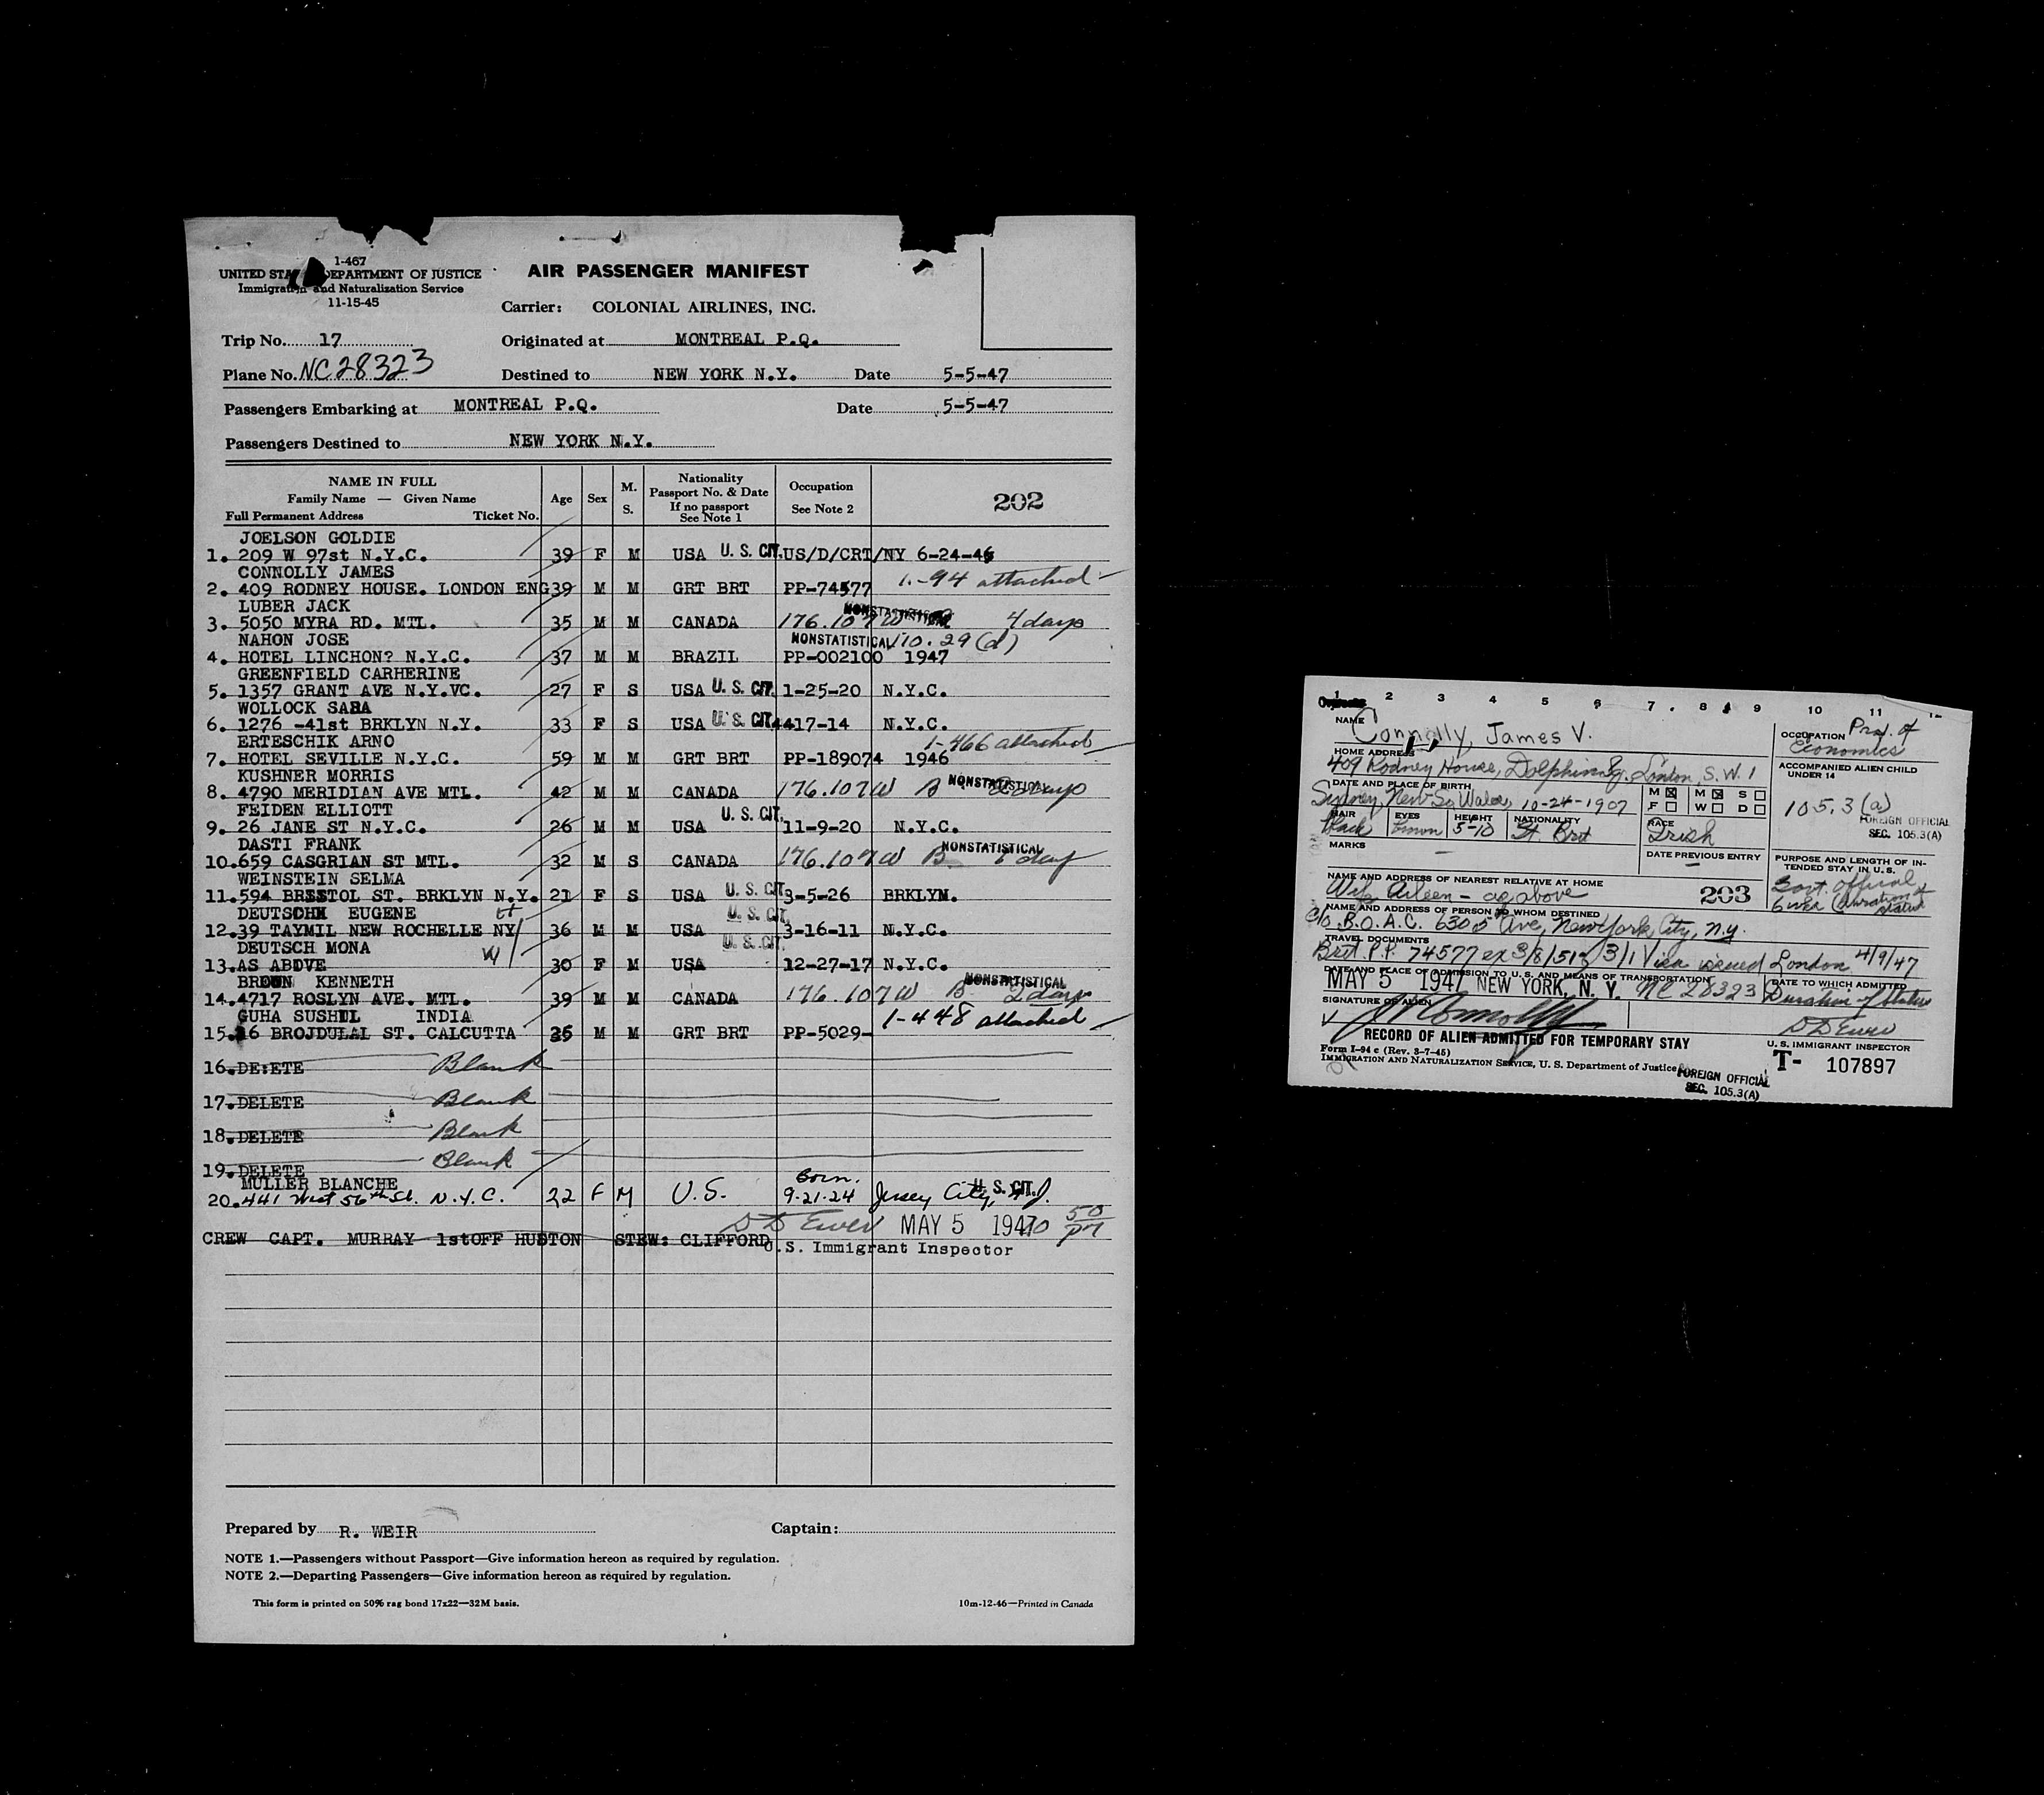 1-467
UNITED STA DEPARTMENT OF JUSTICE
Immigration and Naturalization Service
11-15-45
AIR PASSENGER MANIFEST
Carrier: COLONIAL AIRLINES, INC.
Trip No. 17
Originated at MONTREAL P.Q.
Plane No. NC28323
Destined to NEW YORK N.Y. Date 5-5-47
Passengers Embarking at MONTREAL P.Q. Date 5-5-47
Passengers Destined to NEW YORK N.Y.
NAME IN FULL
Family Name — Given Name
Full Permanent Address Ticket No.
Age
Sex
M.
S.
Nationality
Passport No. & Date
If no passport
See Note 1
Occupation
See Note 2
202
JOELSON GOLDIE
1. 209 W 97st N.Y.C. 39 F M USA U. S. CIT. US/D/CRT/NY 6-24-46
CONNOLLY JAMES
2. 409 RODNEY HOUSE. LONDON ENG 39 M M GRT BRT PP-74577 1-94 attached
LUBER JACK
3. 5050 MYRA RD. MTL. 35 M M CANADA 176.107W NONSTATISTICAL 4 days
NAHON JOSE NONSTATISTICAL 110.29(d)
4. HOTEL LINCHON? N.Y.C. 37 M M BRAZIL PP-002100 1947
GREENFIELD CARHERINE
5. 1357 GRANT AVE N.Y.VC. 27 F S USA U. S. CIT. 1-25-20 N.Y.C.
WOLLOCK SARA
6. 1276 -41st BRKLYN N.Y. 33 F S USA U. S. CIT. 4-17-14 N.Y.C.
ERTESCHIK ARNO 1-466 attached
7. HOTEL SEVILLE N.Y.C. 59 M M GRT BRT PP-189074 1946
KUSHNER MORRIS
8. 4790 MERIDIAN AVE MTL. 42 M M CANADA 176.107W B NONSTATISTICAL days
FEIDEN ELLIOTT U. S. CIT.
9. 26 JANE ST N.Y.C. 26 M M USA 11-9-20 N.Y.C.
DASTI FRANK
10. 659 CASGRIAN ST MTL. 32 M S CANADA 176.107W B NONSTATISTICAL 1 day
WEINSTEIN SELMA
11. 594 BRISTOL ST. BRKLYN N.Y. 21 F S USA U. S. CIT. 3-5-26 BRKLYN.
DEUTSCH EUGENE U. S. CIT.
12. 39 TAYMIL NEW ROCHELLE NY 36 M M USA 3-16-11 N.Y.C.
DEUTSCH MONA W U. S. CIT.
13. AS ABOVE 30 F M USA 12-27-17 N.Y.C.
BROWN KENNETH NONSTATISTICAL
14. 4717 ROSLYN AVE. MTL. 39 M M CANADA 176.107W B 2 days
GUHA SUSHIL INDIA 1-448 attached
15. 16 BROJDULAL ST. CALCUTTA 35 M M GRT BRT PP-5029-
16. DE:ETE Blank
17. DELETE Blank
18. DELETE Blank
19. DELETE Blank
MULLER BLANCHE Born.
20. 441 West 56th St. N.Y.C. 22 F M U.S. 9-21-24 Jersey City, N.J. U. S. CIT.
D D Ewen MAY 5 1947 10 50 PM
CREW CAPT. MURRAY 1stOFF HUDTON STEW: CLIFFORD
U.S. Immigrant Inspector
Prepared by R. WEIR
Captain:
NOTE 1.—Passengers without Passport—Give information hereon as required by regulation.
NOTE 2.—Departing Passengers—Give information hereon as required by regulation.
This form is printed on 50% rag bond 17x22—32M basis.
10m-12-46—Printed in Canada
1 2 3 4 5 6 7 8 9 10 11 12
NAME Connolly, James V.
OCCUPATION Prof. of Economics
HOME ADDRESS
409 Rodney House, Dolphin Sq. London, S.W. 1
ACCOMPANIED ALIEN CHILD UNDER 14
DATE AND PLACE OF BIRTH
Sydney, New So Wales, 10-24-1907
M F M S W D
105.3(a)
FOREIGN OFFICIAL
SEC. 105.3(A)
HAIR Black
EYES Brown
HEIGHT 5-10
NATIONALITY Gt. Brit
RACE Irish
MARKS —
DATE PREVIOUS ENTRY
—
PURPOSE AND LENGTH OF INTENDED STAY IN U.S.
Govt. Official
duration of status
NAME AND ADDRESS OF NEAREST RELATIVE AT HOME
Wife Aileen - as above
203
NAME AND ADDRESS OF PERSON TO WHOM DESTINED
c/o B.O.A.C. 630 5 Ave, New York City, N.Y.
TRAVEL DOCUMENTS
Brit P.P. 74577 ex 3/8/51 3/1 Visa issued London 4/9/47
DATE AND PLACE OF ADMISSION TO U.S. AND MEANS OF TRANSPORTATION
MAY 5 1947 NEW YORK, N. Y. NC 28323
DATE TO WHICH ADMITTED
Duration of Status
SIGNATURE OF ALIEN
J V Connolly
D D Ewen
RECORD OF ALIEN ADMITTED FOR TEMPORARY STAY
U. S. IMMIGRANT INSPECTOR
Form I-94 c (Rev. 3-7-45)
IMMIGRATION AND NATURALIZATION SERVICE, U. S. Department of Justice
T- 107897
FOREIGN OFFICIAL
SEC. 105.3(A)